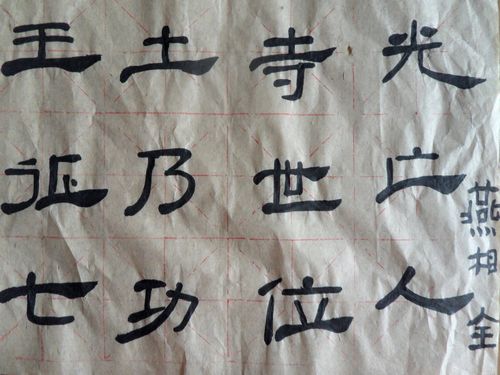 燕相全
光亡人
寺世位
土乃功
王征七